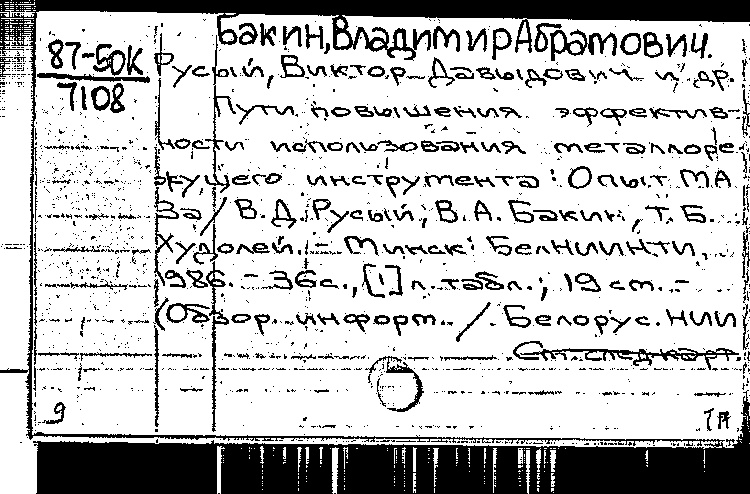 Бакин, Владимир Абрамович.
87-50К
7108
Русый, Виктор Давыдович и др.
Пути повышения эффектив-
ности использования металлоре-
жущего инструмента: Опыт МА
За / В. Д. Русый, В. А. Бакин, Т. Б.
Худолей. - Минск: БелНИИНТИ,
1986. - 36 с., [1] л. табл.; 19 см. -
(Обзор. информ. / Белорус. НИИ
См. след. карт.
9